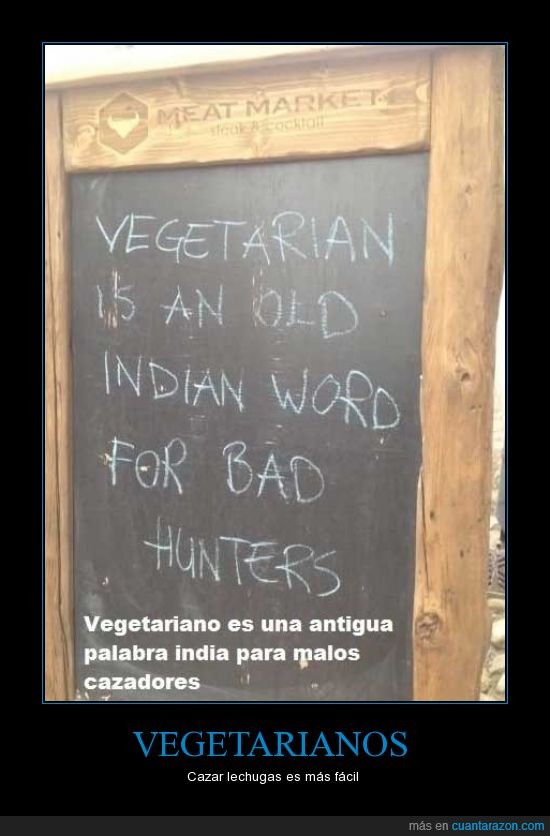 MEAT MARKET
steak & cocktail
VEGETARIAN
IS AN OLD
INDIAN WORD
FOR BAD
HUNTERS
Vegetariano es una antigua
palabra india para malos
cazadores
VEGETARIANOS
Cazar lechugas es más fácil
más en cuantarazon.com